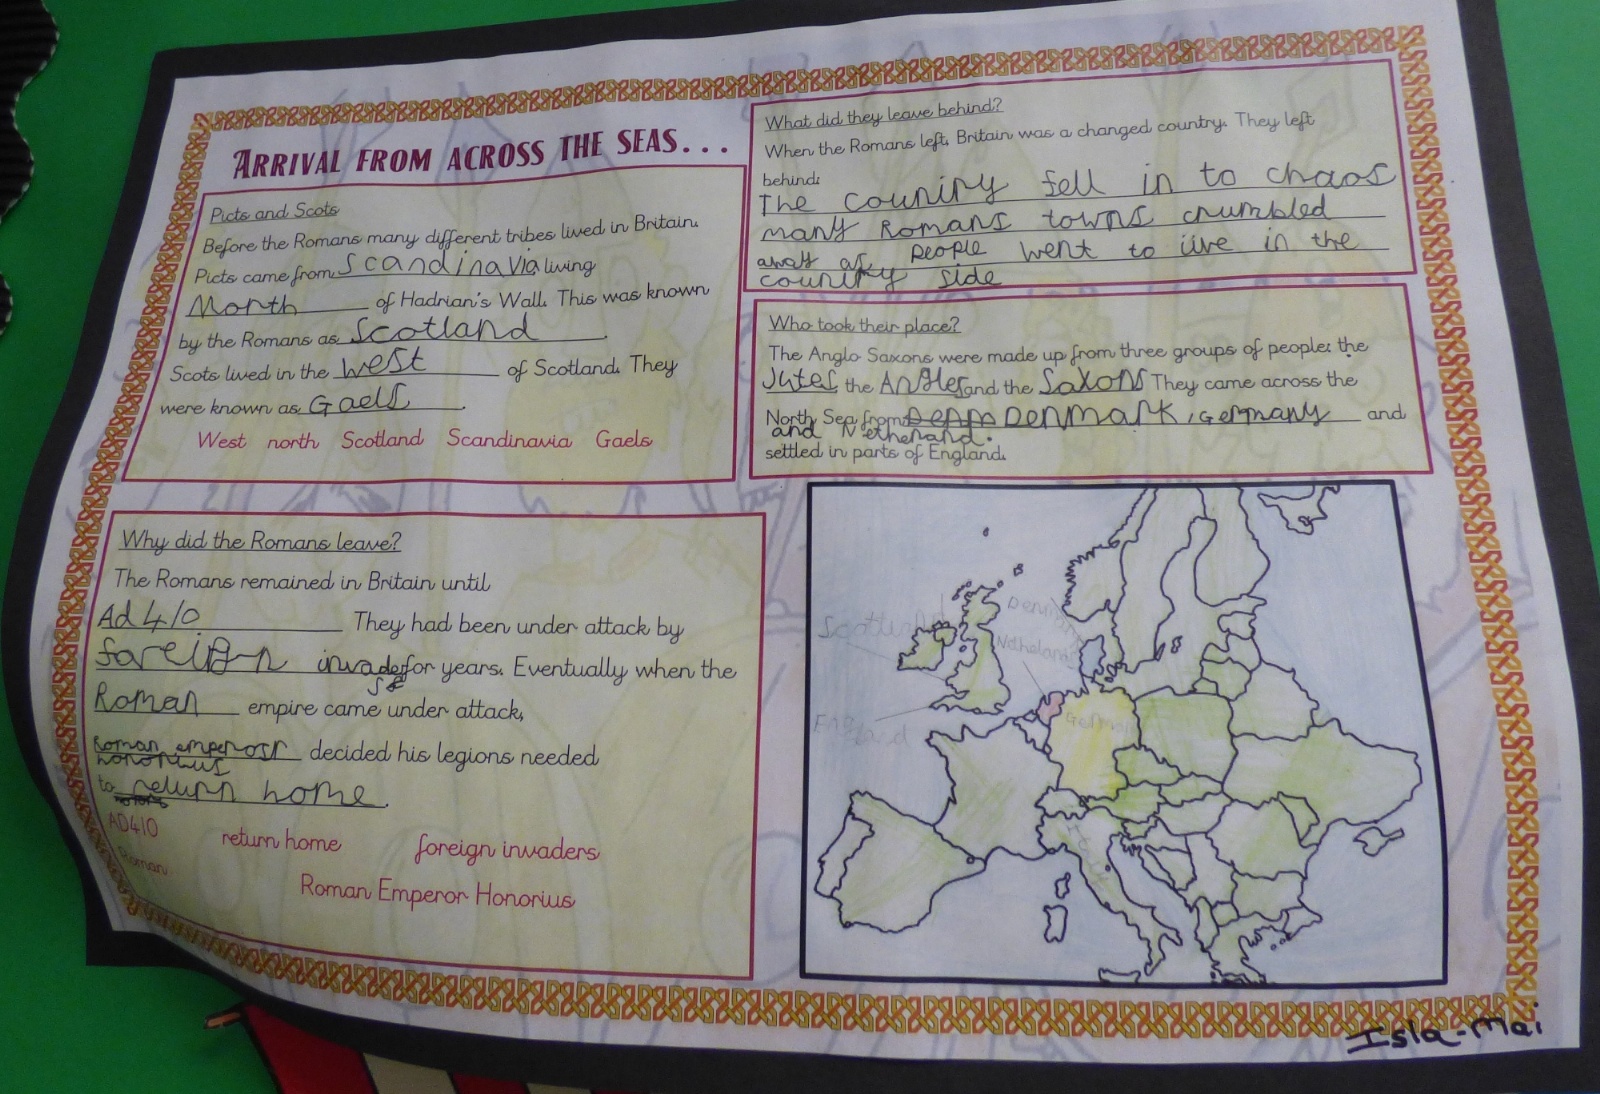 ARRIVAL FROM ACROSS THE SEAS...
Picts and Scots
Before the Romans many different tribes lived in Britain.
Picts came from scandinavia living
North of Hadrian's Wall. This was known
by the Romans as Scotland.
Scots lived in the west of Scotland. They
were known as Gaels.
West north Scotland Scandinavia Gaels
Why did the Romans leave?
The Romans remained in Britain until
Ad 410 They had been under attack by
foreign invaders for years. Eventually when the
Roman empire came under attack,
Roman emperosr honorius decided his legions needed
to return home.
AD410 return home foreign invaders
Roman
Roman Emperor Honorius
What did they leave behind?
When the Romans left, Britain was a changed country. They left
behind:
The country fell in to chaos
many Romans towns crumbled
away as people went to live in the
country side
Who took their place?
The Anglo Saxons were made up from three groups of people: the
Jutes the Angles and the Saxons They came across the
North Sea from Denmark, Germany and
and Netherland.
settled in parts of England.
Scotland
England
Germany
Isla-Mai